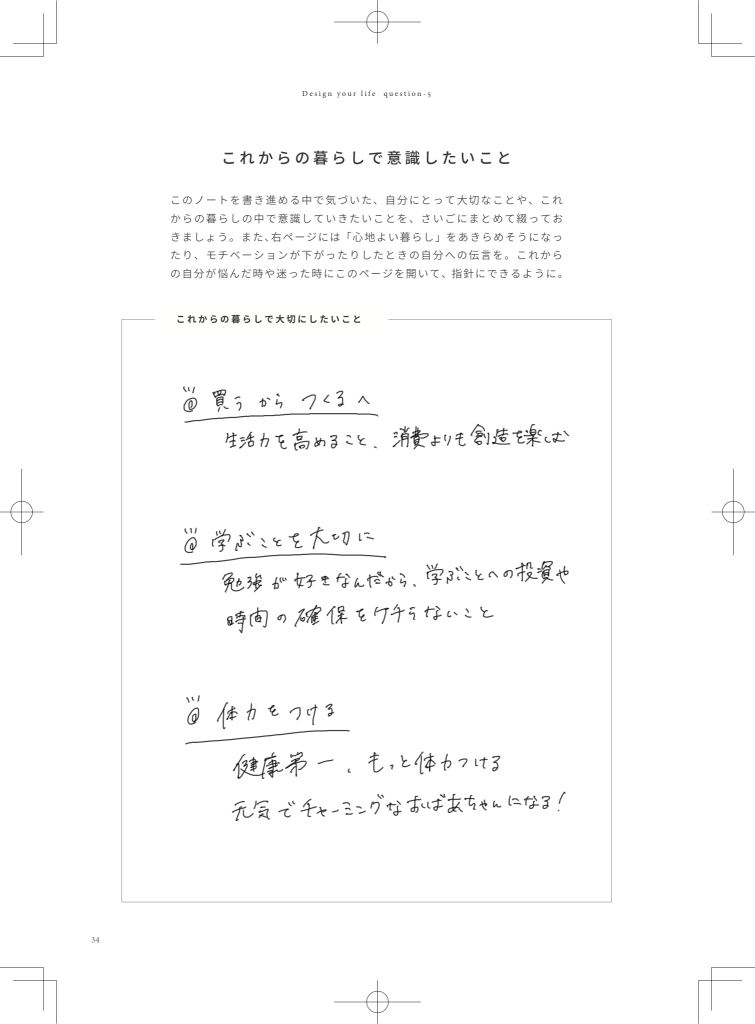 Design your life question-5
これからの暮らしで意識したいこと
このノートを書き進める中で気づいた、自分にとって大切なことや、これ
からの暮らしの中で意識していきたいことを、さいごにまとめて綴ってお
きましょう。また、右ページには「心地よい暮らし」をあきらめそうになっ
たり、モチベーションが下がったりしたときの自分への伝言を。これから
の自分が悩んだ時や迷った時にこのページを開いて、指針にできるように。
これからの暮らしで大切にしたいこと
買うからつくるへ
生活力を高めること、消費よりも創造を楽しむ
学ぶことを大切に
勉強が好きなんだから、学ぶことへの投資や
時間の確保をケチらないこと
体力をつける
健康第一、もっと体力つける
元気でチャーミングなおばあちゃんになる!
34